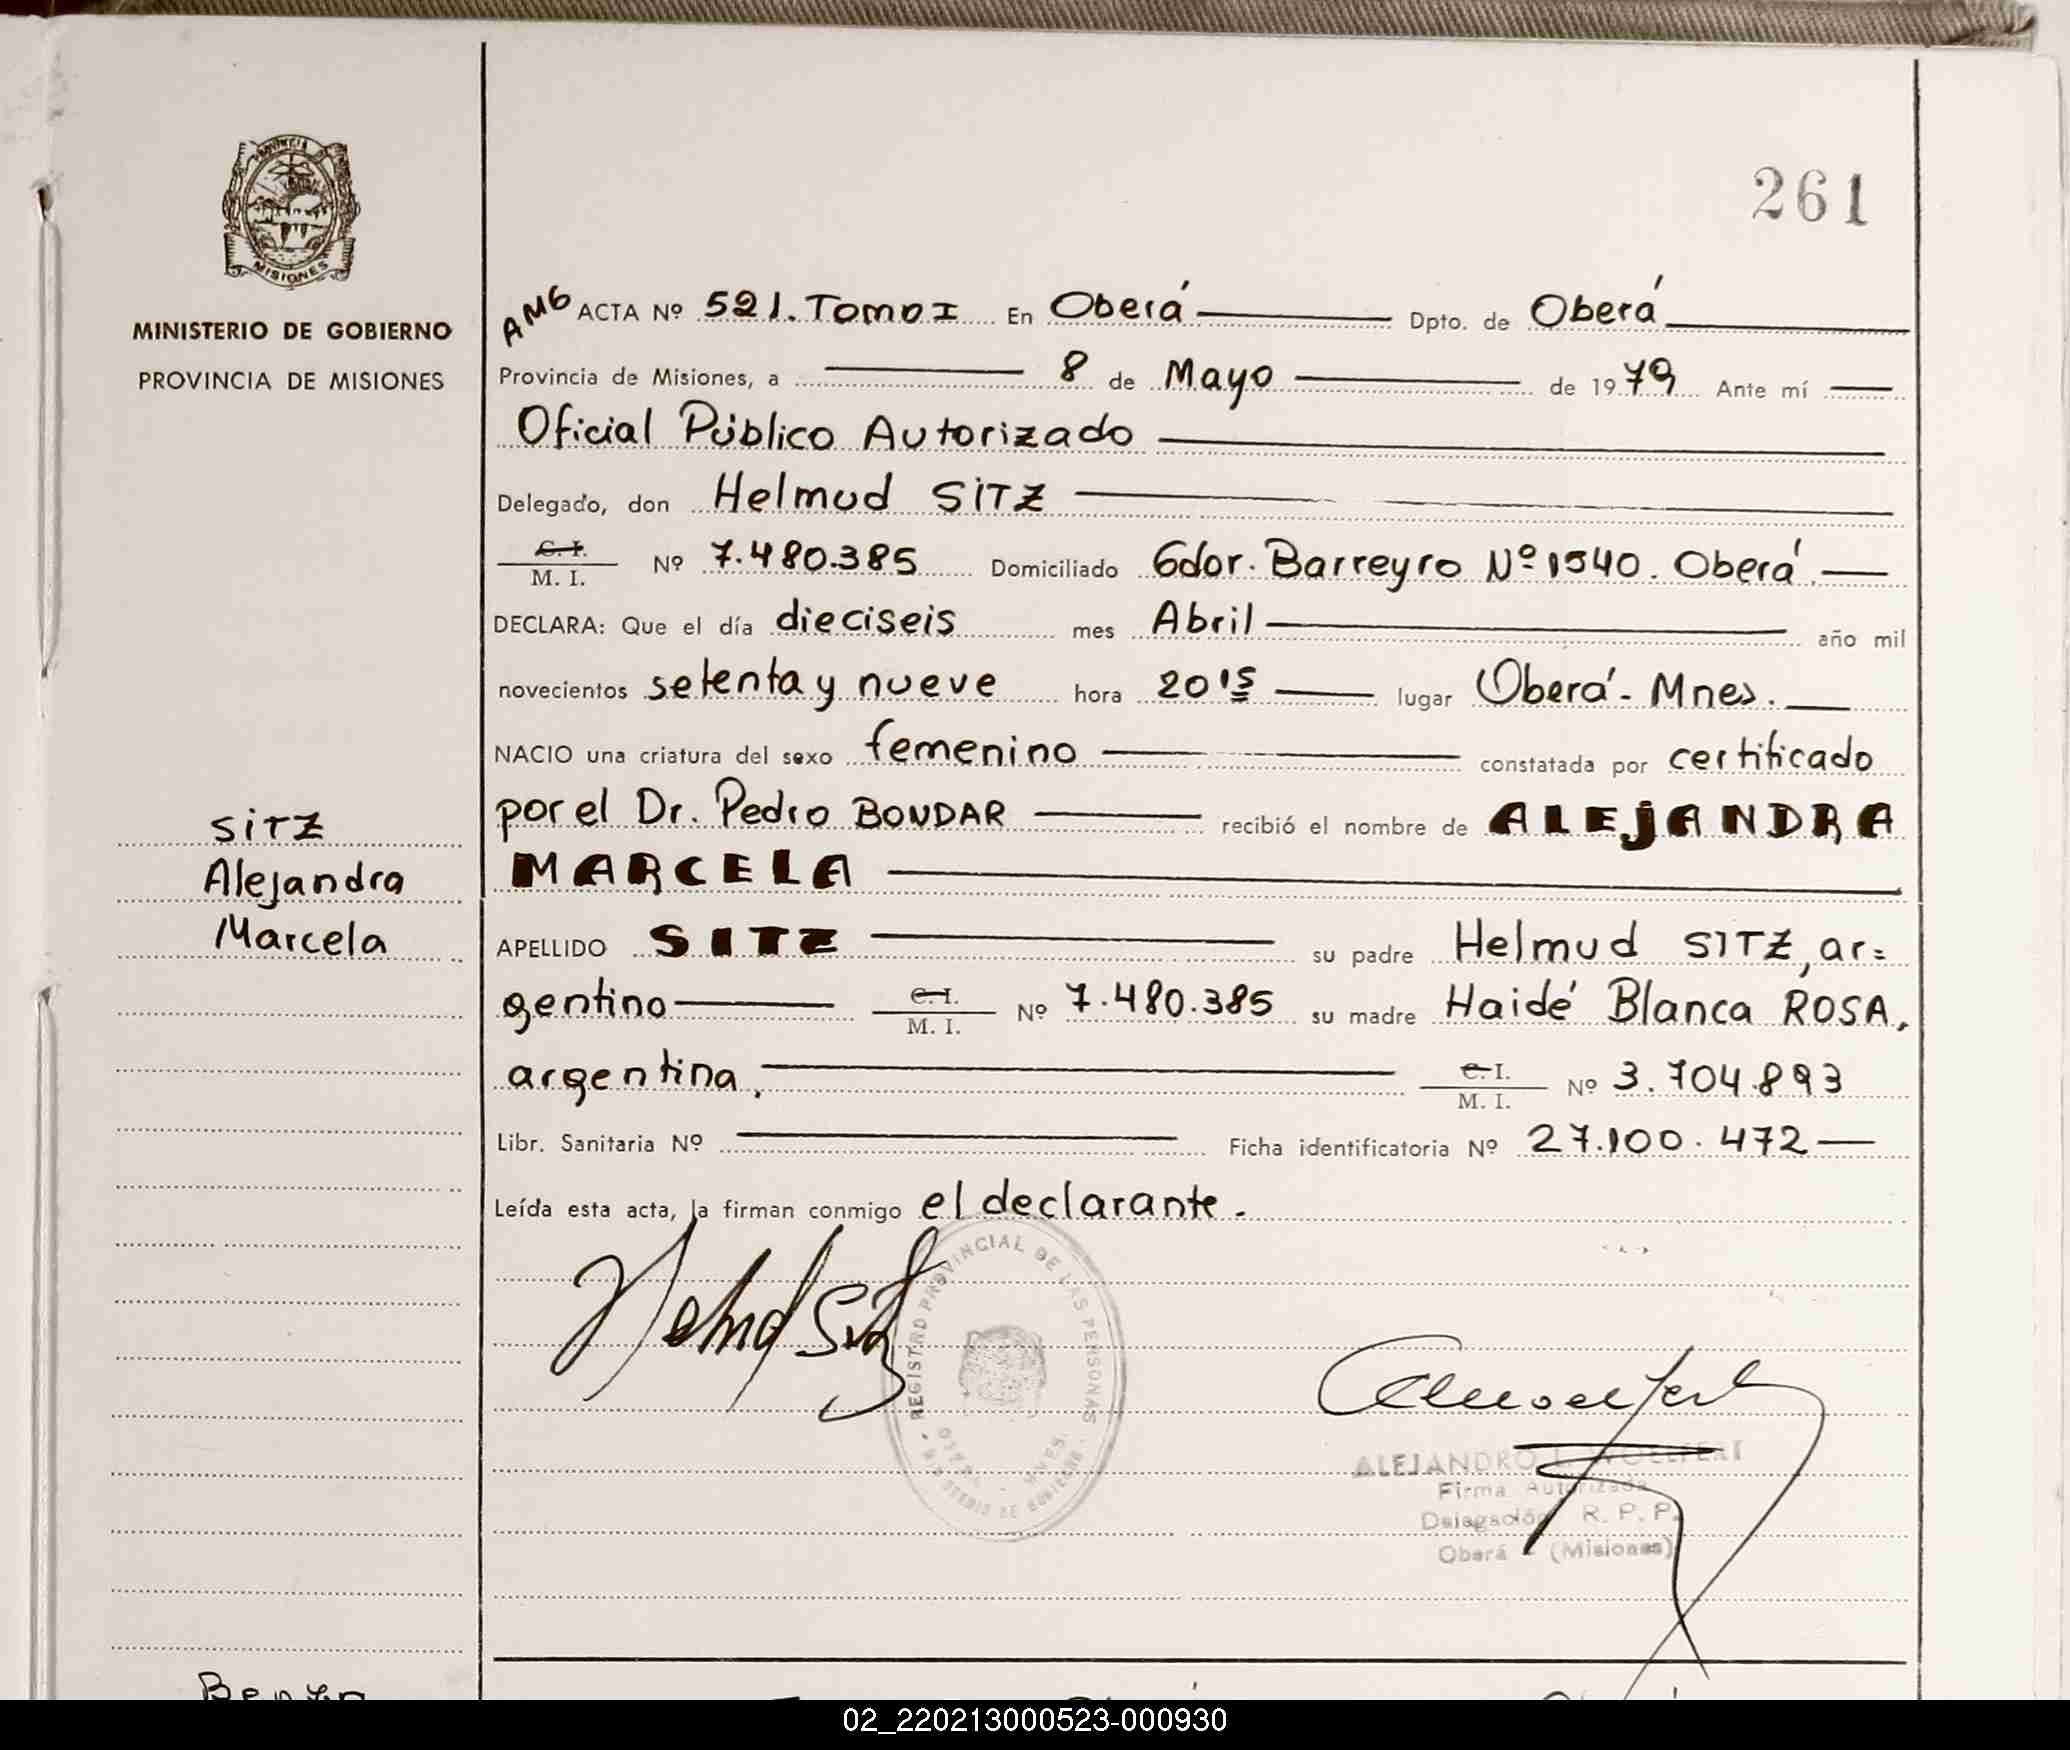 261
PROVINCIA DE
MISIONES
MINISTERIO DE GOBIERNO
PROVINCIA DE MISIONES
AMG ACTA Nº 521. Tomo I En Oberá Dpto. de Oberá
Provincia de Misiones, a 8 de Mayo de 1979 Ante mí
Oficial Público Autorizado
Delegado, don Helmud SITZ
C. I.
M. I. Nº 7.480.385 Domiciliado Gdor. Barreyro Nº 1540. Oberá.
DECLARA: Que el día dieciseis mes Abril año mil
novecientos setenta y nueve hora 20 15 lugar Oberá - Mnes.
NACIO una criatura del sexo femenino constatada por certificado
por el Dr. Pedro BONDAR recibió el nombre de ALEJANDRA
MARCELA
SITZ
Alejandra
Marcela
APELLIDO SITZ su padre Helmud SITZ, ar=
gentino C. I.
M. I. Nº 7.480.385 su madre Haidé Blanca ROSA,
argentina, C. I.
M. I. Nº 3.704.893
Libr. Sanitaria Nº Ficha identificatoria Nº 27.100.472
Leída esta acta, la firman conmigo el declarante.
REGISTRO PROVINCIAL DE LAS PERSONAS
ALEJANDRO L. WOELFERT
Firma Autorizada
Delegación R. P. P.
Oberá (Misiones)
02_220213000523-000930